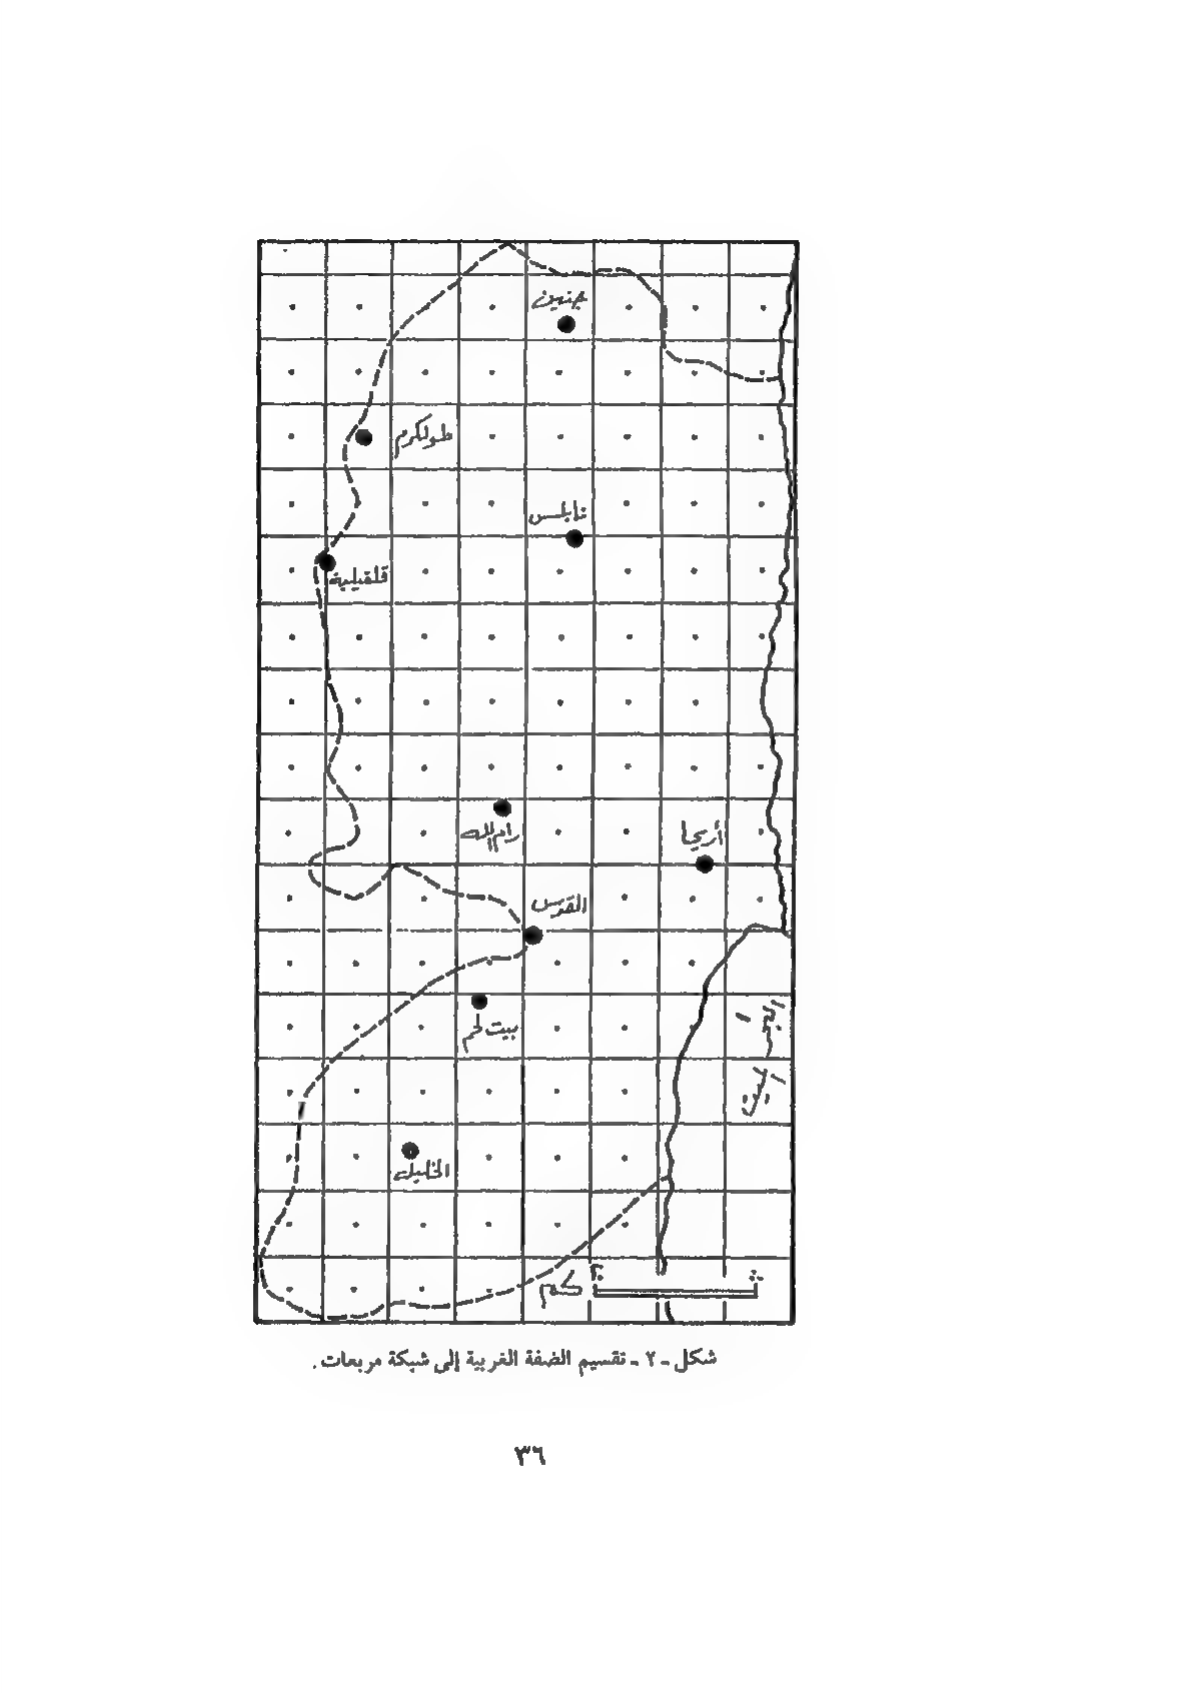 جنين
طولكرم
نابلس
قلقيلية
رام الله
أريحا
القدس
بيت لحم
البحر
الميت
الخليل
كم
شكل - ٢ - تقسيم الضفة الغربية إلى شبكة مربعات .
٣٦